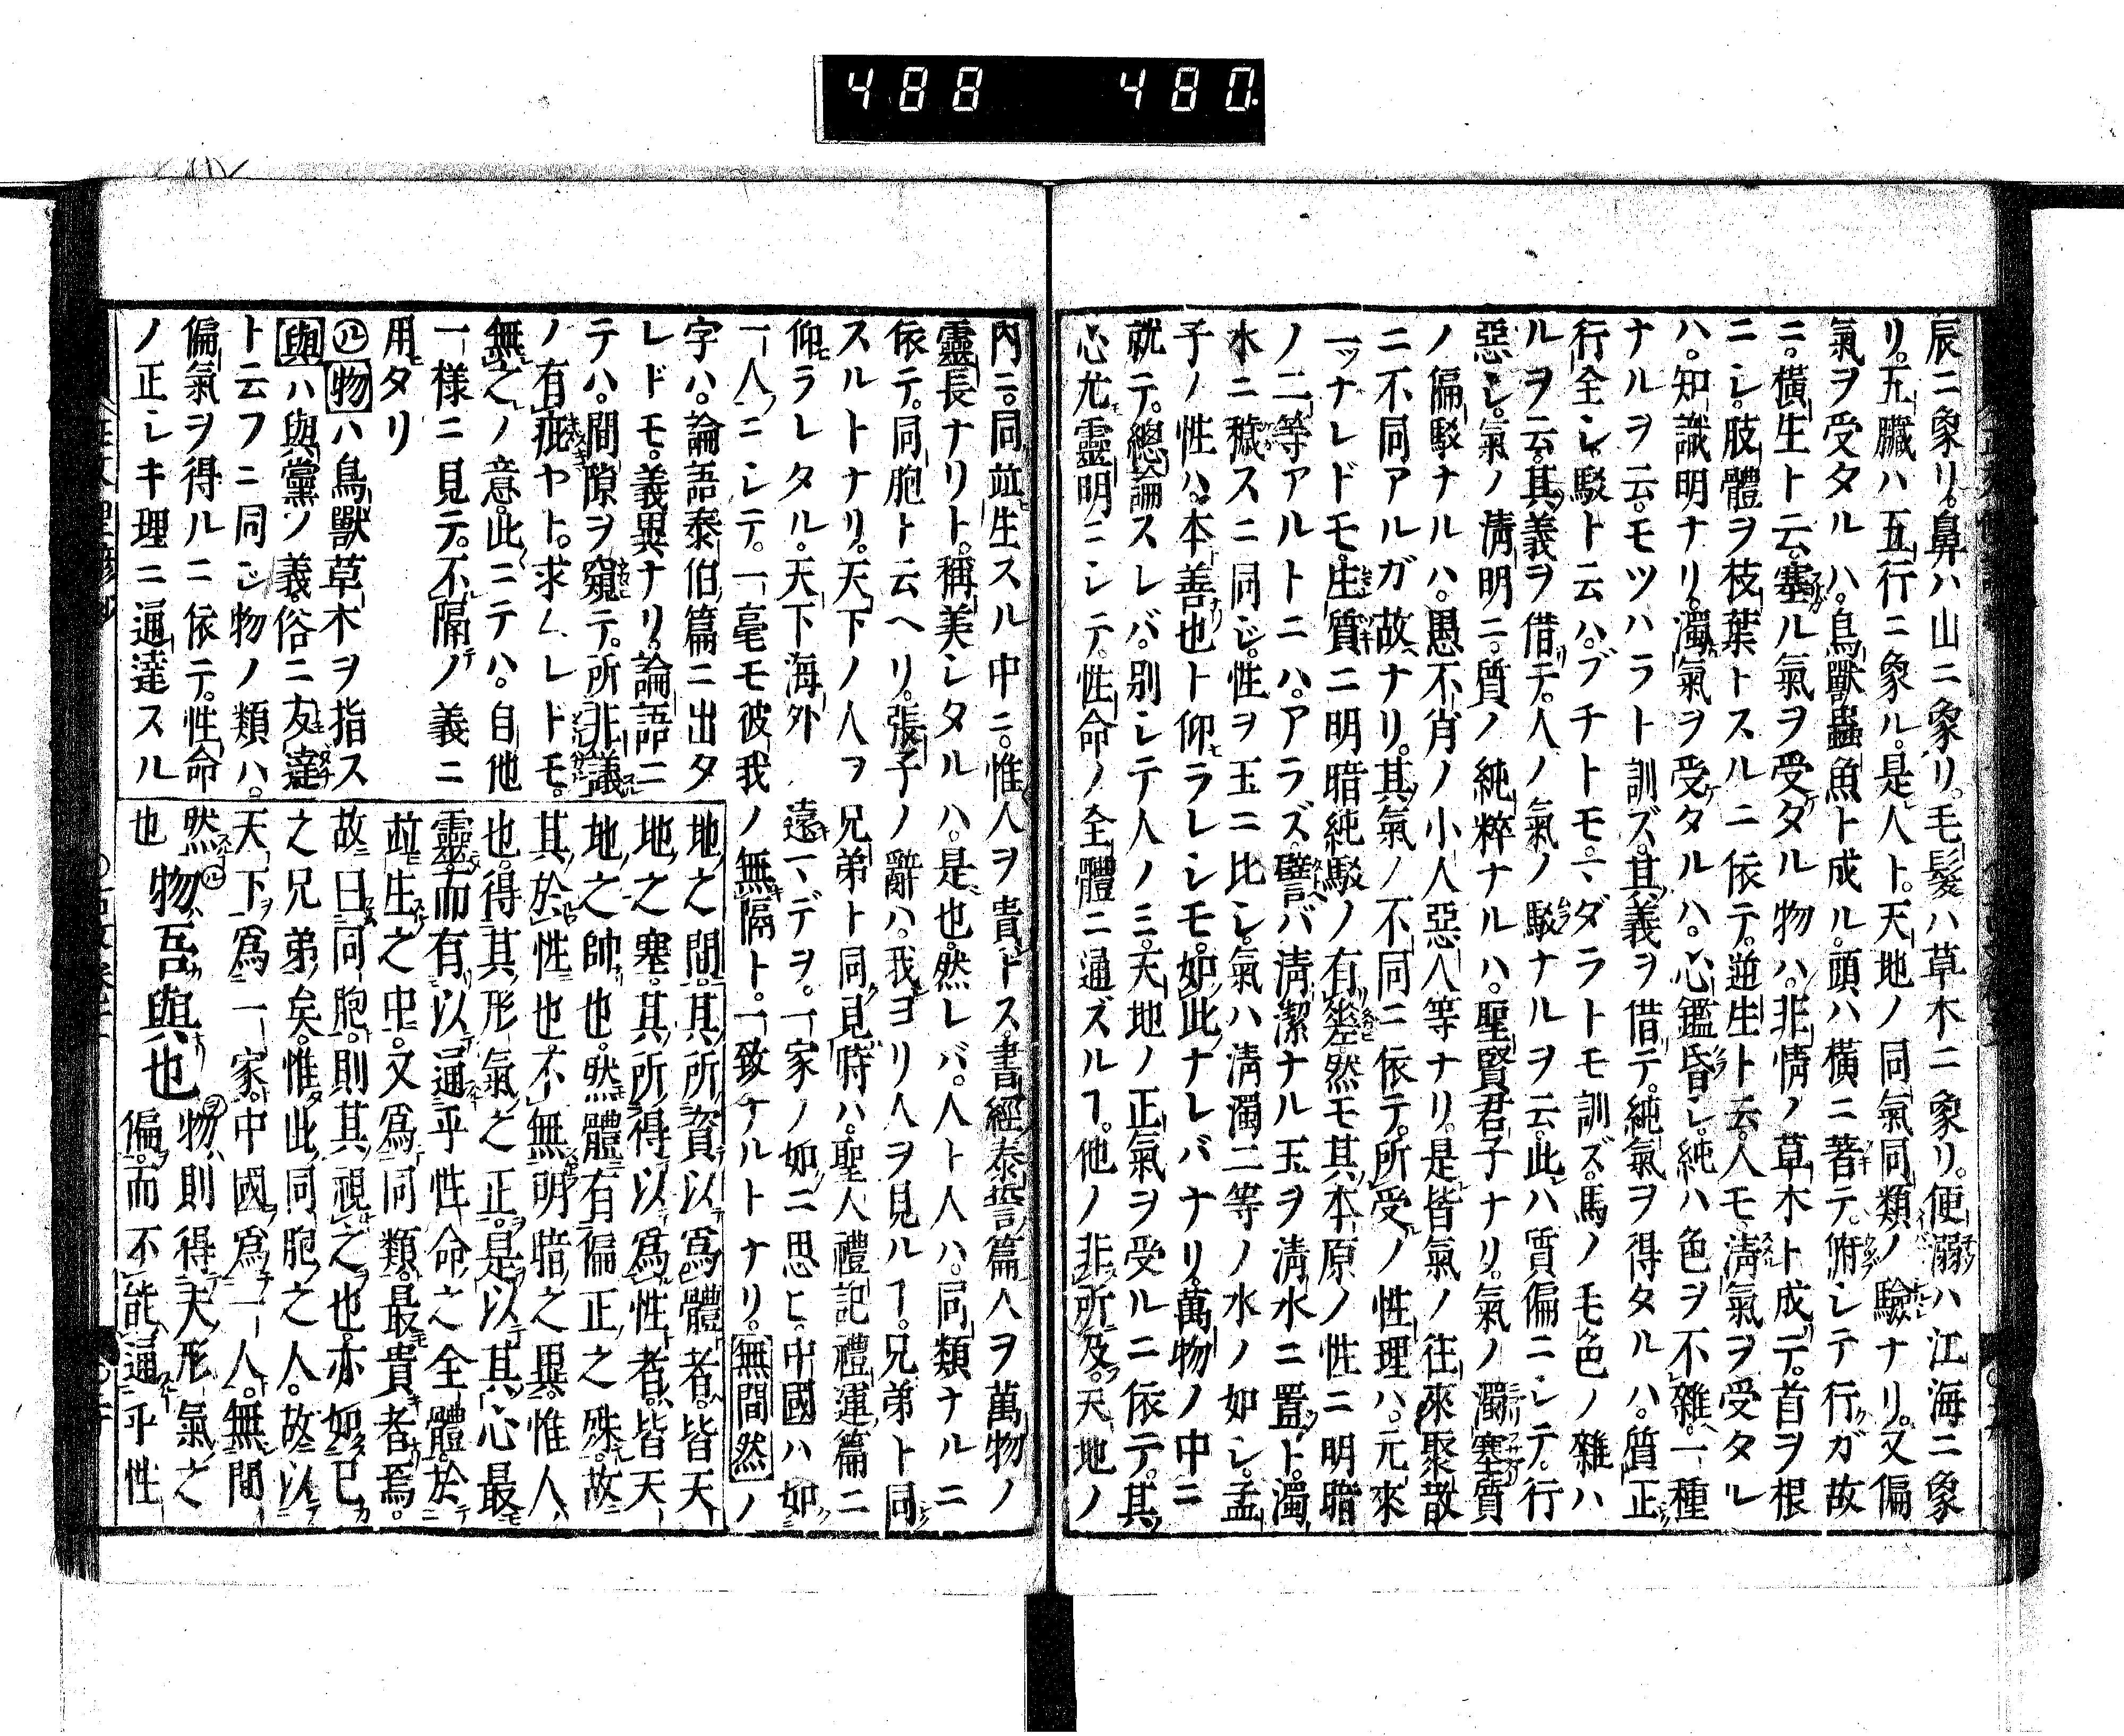 488 480
辰ニ象リ。鼻ハ山ニ象リ。毛髮ハ草木ニ象リ。便溺ハ江海ニ象
リ。五臟ハ五行ニ象ル。是人ト。天地ノ同氣同類ノ驗ナリ。又偏
氣ヲ受タルハ。鳥獸蟲魚ト成ル。頭ハ橫ニ著テ。俯シテ行ガ故
ニ。橫生ト云。塞ル氣ヲ受タル物ハ。非情ノ草木ト成テ。首ヲ根
ニシ。肢體ヲ枝葉トスルニ依テ。逆生ト云。人モ。淸氣ヲ受タル
ハ。知識明ナリ。濁氣ヲ受タルハ。心鑑昏シ。純ハ色ヲ不雜。一種
ナルヲ云。モツハラト訓ズ。其義ヲ借テ。純氣ヲ得タルハ。質正
行全シ。駁ト云ハ。ブチトモ。マダラトモ訓ズ。馬ノ毛色ノ雜ハ
ルヲ云。其義ヲ借テ。人ノ氣ノ駁ナルヲ云。此ハ質偏ニシテ。行
惡シ。氣ノ淸明ニ。質ノ純粹ナルハ。聖賢君子ナリ。氣ノ濁塞質
ノ偏駁ナルハ。愚不肖ノ小人惡人等ナリ。是皆氣ノ往來聚散
ニ不同アルガ故ナリ。其氣ノ不同ニ依テ。所受ノ性理ハ。元來
一ツナレドモ。生質ニ明暗純駁ノ有差。然モ其本原ノ性ニ明暗
ノ二等アルトニハ。アラズ。譬バ淸潔ナル玉ヲ淸水ニ置ト。濁
水ニ穢スニ同ジ。性ヲ玉ニ比シ。氣ハ淸濁二等ノ水ノ如シ。孟
子ノ性ハ。本善也ト仰ラレシモ。如此ナレバナリ。萬物ノ中ニ
就テ。總論スレバ。別シテ人ノミ。天地ノ正氣ヲ受ルニ依テ。其
心尤靈明ニシテ。性命ノ全體ニ通ズルヿ。他ノ非所及。天地ノ
內ニ。同並生スル中ニ。惟人ヲ貴トス。書經泰誓篇人ヲ萬物ノ
靈長ナリト。稱美シタルハ。是也。然レバ。人ト人ハ。同類ナルニ
依テ。同胞ト云ヘリ。張子ノ辭ハ。我ヨリ人ヲ見ルヿ。兄弟ト同
スルトナリ。天下ノ人ヲ兄弟ト同見時ハ。聖人禮記禮運篇ニ
仰ラレタル。天下海外遠マデヲ。一家ノ如ニ思ヒ。中國ハ如
一人ニシテ。一毫モ彼我ノ無隔ト。一致ナルトナリ。無間然ノ
字ハ。論語泰伯篇ニ出タ
レドモ。義異ナリ。論語ニ
テハ。間隙ヲ窺テ。所非議
ノ有疵ヤト。求ムレトモ。
無之ノ意。此ニテハ。自他
一樣ニ見テ。不隔ノ義ニ
用タリ
㋸物ハ鳥獸草木ヲ指ス
與ハ與黨ノ義。俗ニ友達
ト云フニ同シ物ノ類ハ。
偏氣ヲ得ルニ依テ。性命
ノ正シキ理ニ通達スル
地之間。其所資以爲體者。皆天
地之塞。其所得以爲性者。皆天
地之帥也。然體有偏正之殊。故
其於性也不無明暗之異。惟人
也。得其形氣之正。是以其心最
靈而有以通乎性命之全體。於
並生之中。又爲同類。最貴者焉。
故曰同胞。則其視之也。亦如己
之兄弟矣。惟此同胞之人。故以
天下爲一家。中國爲一人。無間
然㋸ 物則得夫形氣之
也 物吾與也 偏而不能通乎性